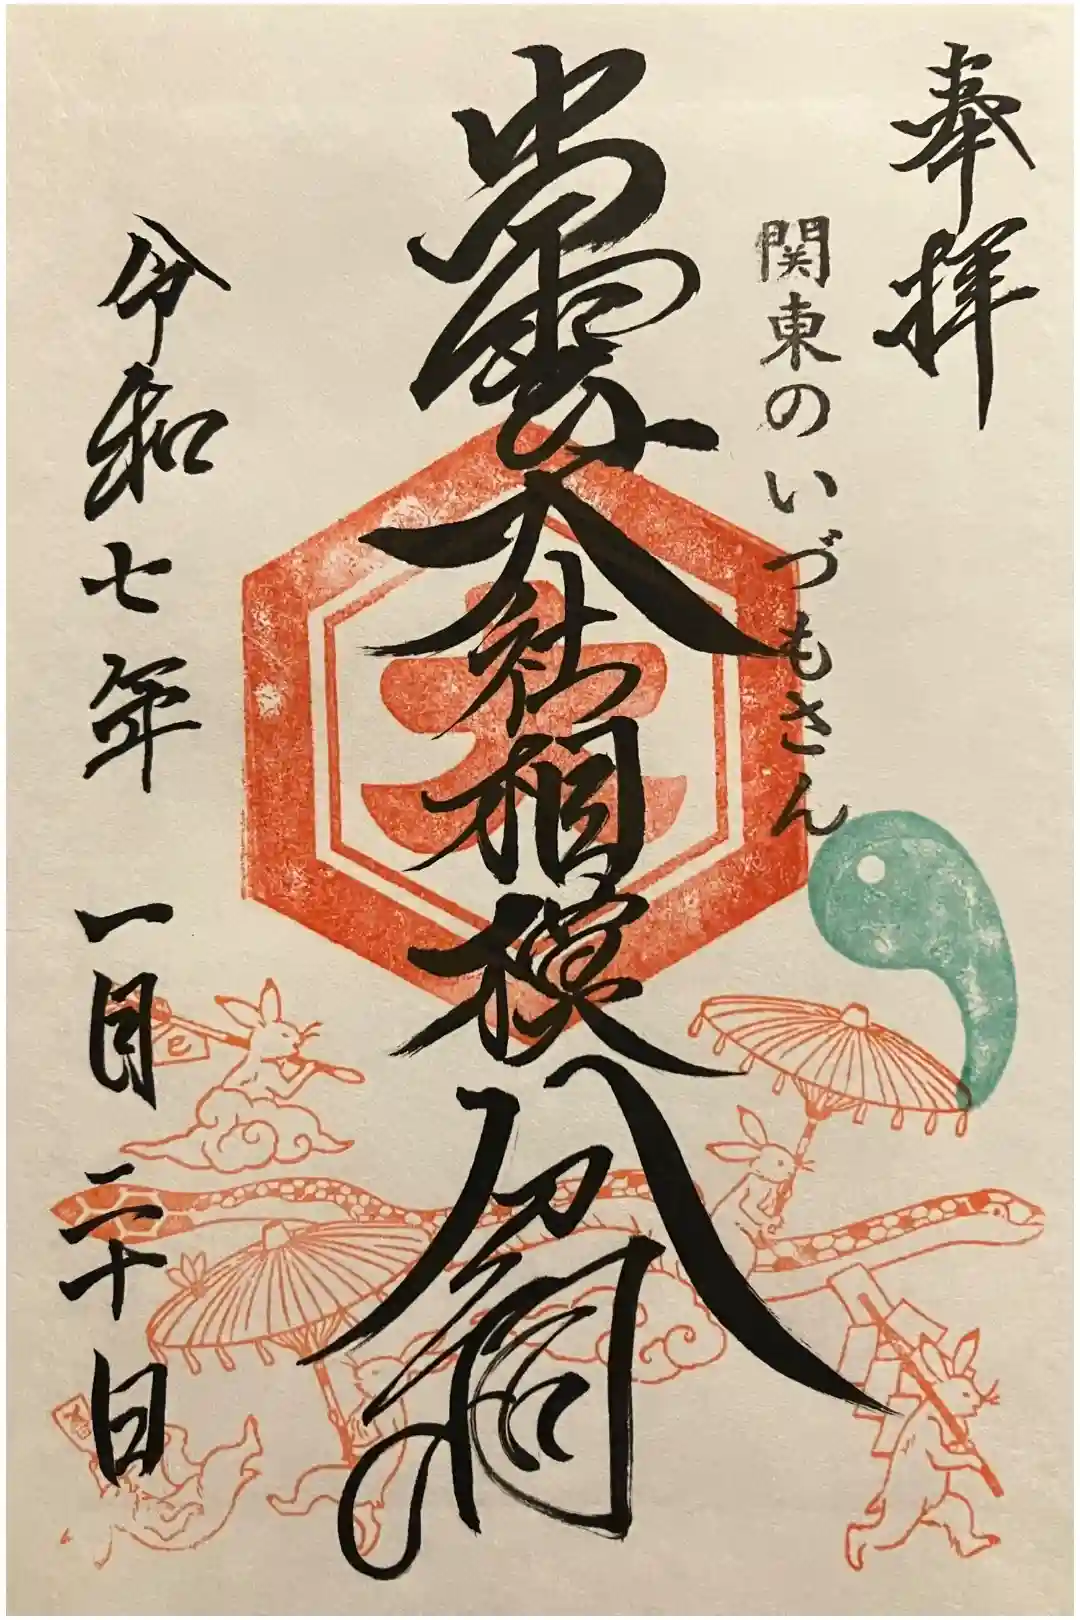 奉拝
関東のいづもさん
出雲大社相模分祠
令和七年一月二十日
大